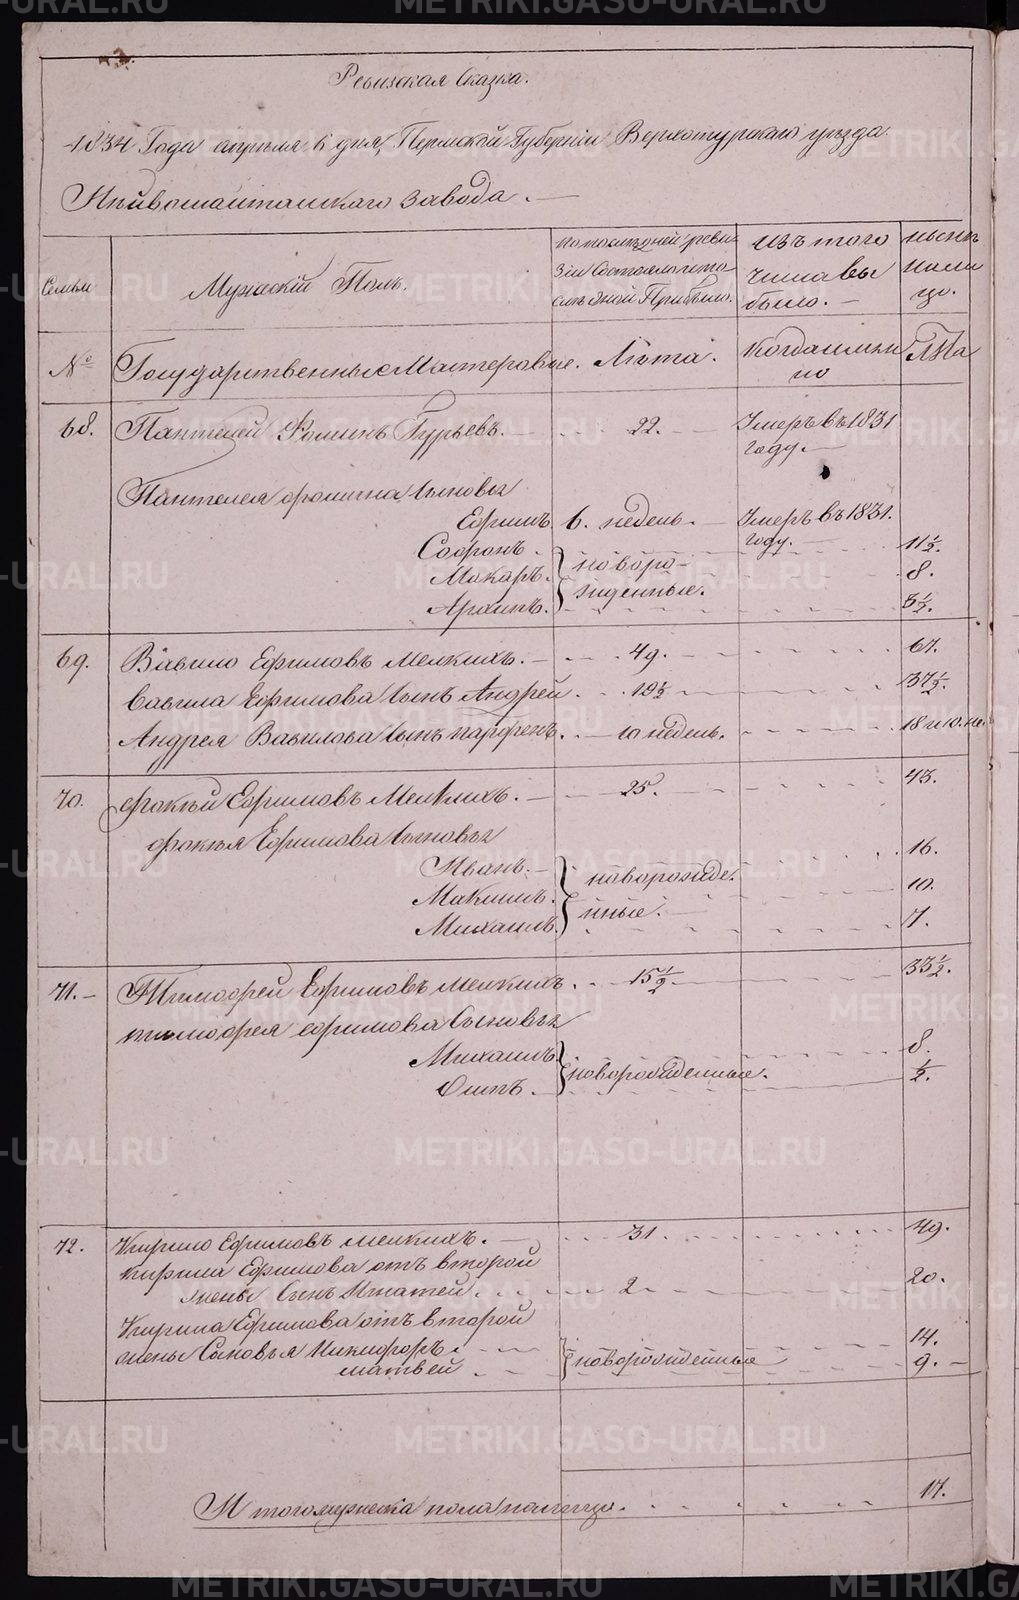 Ревизская Сказка.
1834 Года апреля 6 дня, Пермской Губернiи Верхотурскаго уезда
Нейвошайтанскаго завода. —
Семьи
Мужескiй Полъ.
по последней реви-
зiи состояло и по-
сле оной Прибыло.
Изъ того
числа вы
было. —
ныне
нали
цо.
№
Государственные Мастеровые.
Лета.
Когда имян
но
Лета
68.
Пантелей Фоминъ Гурьевъ. —
22. —
Умеръ въ 1831
году. —
Пантелея фомина сыновья
Ефимъ
6. недель. —
Умеръ въ 1831.
году. —
Софронъ.
новоро-
11 1/2.
Макаръ.
жденные.
8.
Архипъ.
3 1/2.
69.
Вавило Ефимовъ Мелкихъ. —
49.
67.
Вавила Ефимова сынъ Андрей
19 1/2
37 1/2.
Андрея Вавилова сынъ парфенъ.
10 недель.
18 и 10. не.
70.
Фокей Ефимовъ Мелкихъ. —
25.
43.
фокея Ефимова сыновья
Иванъ. —
новорожде-
16.
Максимъ.
нные. —
10.
Михаилъ.
7.
71. —
Тимофей Ефимовъ мелкихъ.
15 1/2
33 1/2.
тимофея ефимова Сыновья
Михаилъ.
новорожденные.
8.
Осипъ.
1/2.
72.
Кирило Ефимовъ мелкихъ. —
31.
49.
кирила Ефимова отъ второй
жены Сынъ Игнатей.
2
20.
Кирила Ефимова отъ второй
жены Сыновья Никифоръ.
14.
матвей
новорожденные
9. —
Итого мужеска пола налицо.
17.
METRIKI.GASO-URAL.RU